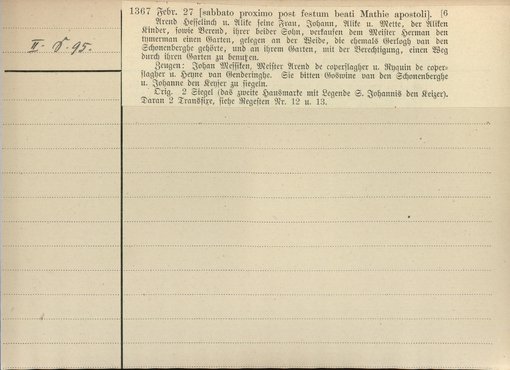 II. 8. 95.
1367 Febr. 27 [sabbato proximo post festum beati Mathie apostoli]. [6
Arend Hesselinch u. Alike seine Frau, Johann, Alike u. Mette, der Aliken
Kinder, sowie Berend, ihrer beider Sohn, verkaufen dem Meister Herman den
tymerman einen Garten, gelegen an der Weide, die ehemals Gerlogh van den
Schonenberghe gehörte, und an ihrem Garten, mit der Berechtigung, einen Weg
durch ihren Garten zu benutzen.
Zeugen: Johan Messiken, Meister Arend de coperslagher u. Ryquin de coper-
slagher u. Heyne van Genderinghe. Sie bitten Goswine van den Schonenberghe
u. Johanne den Keyser zu siegeln.
Orig. 2 Siegel (das zweite Hausmarke mit Legende S. Johannis den Keizer).
Daran 2 Transfixe, siehe Regesten Nr. 12 u. 13.